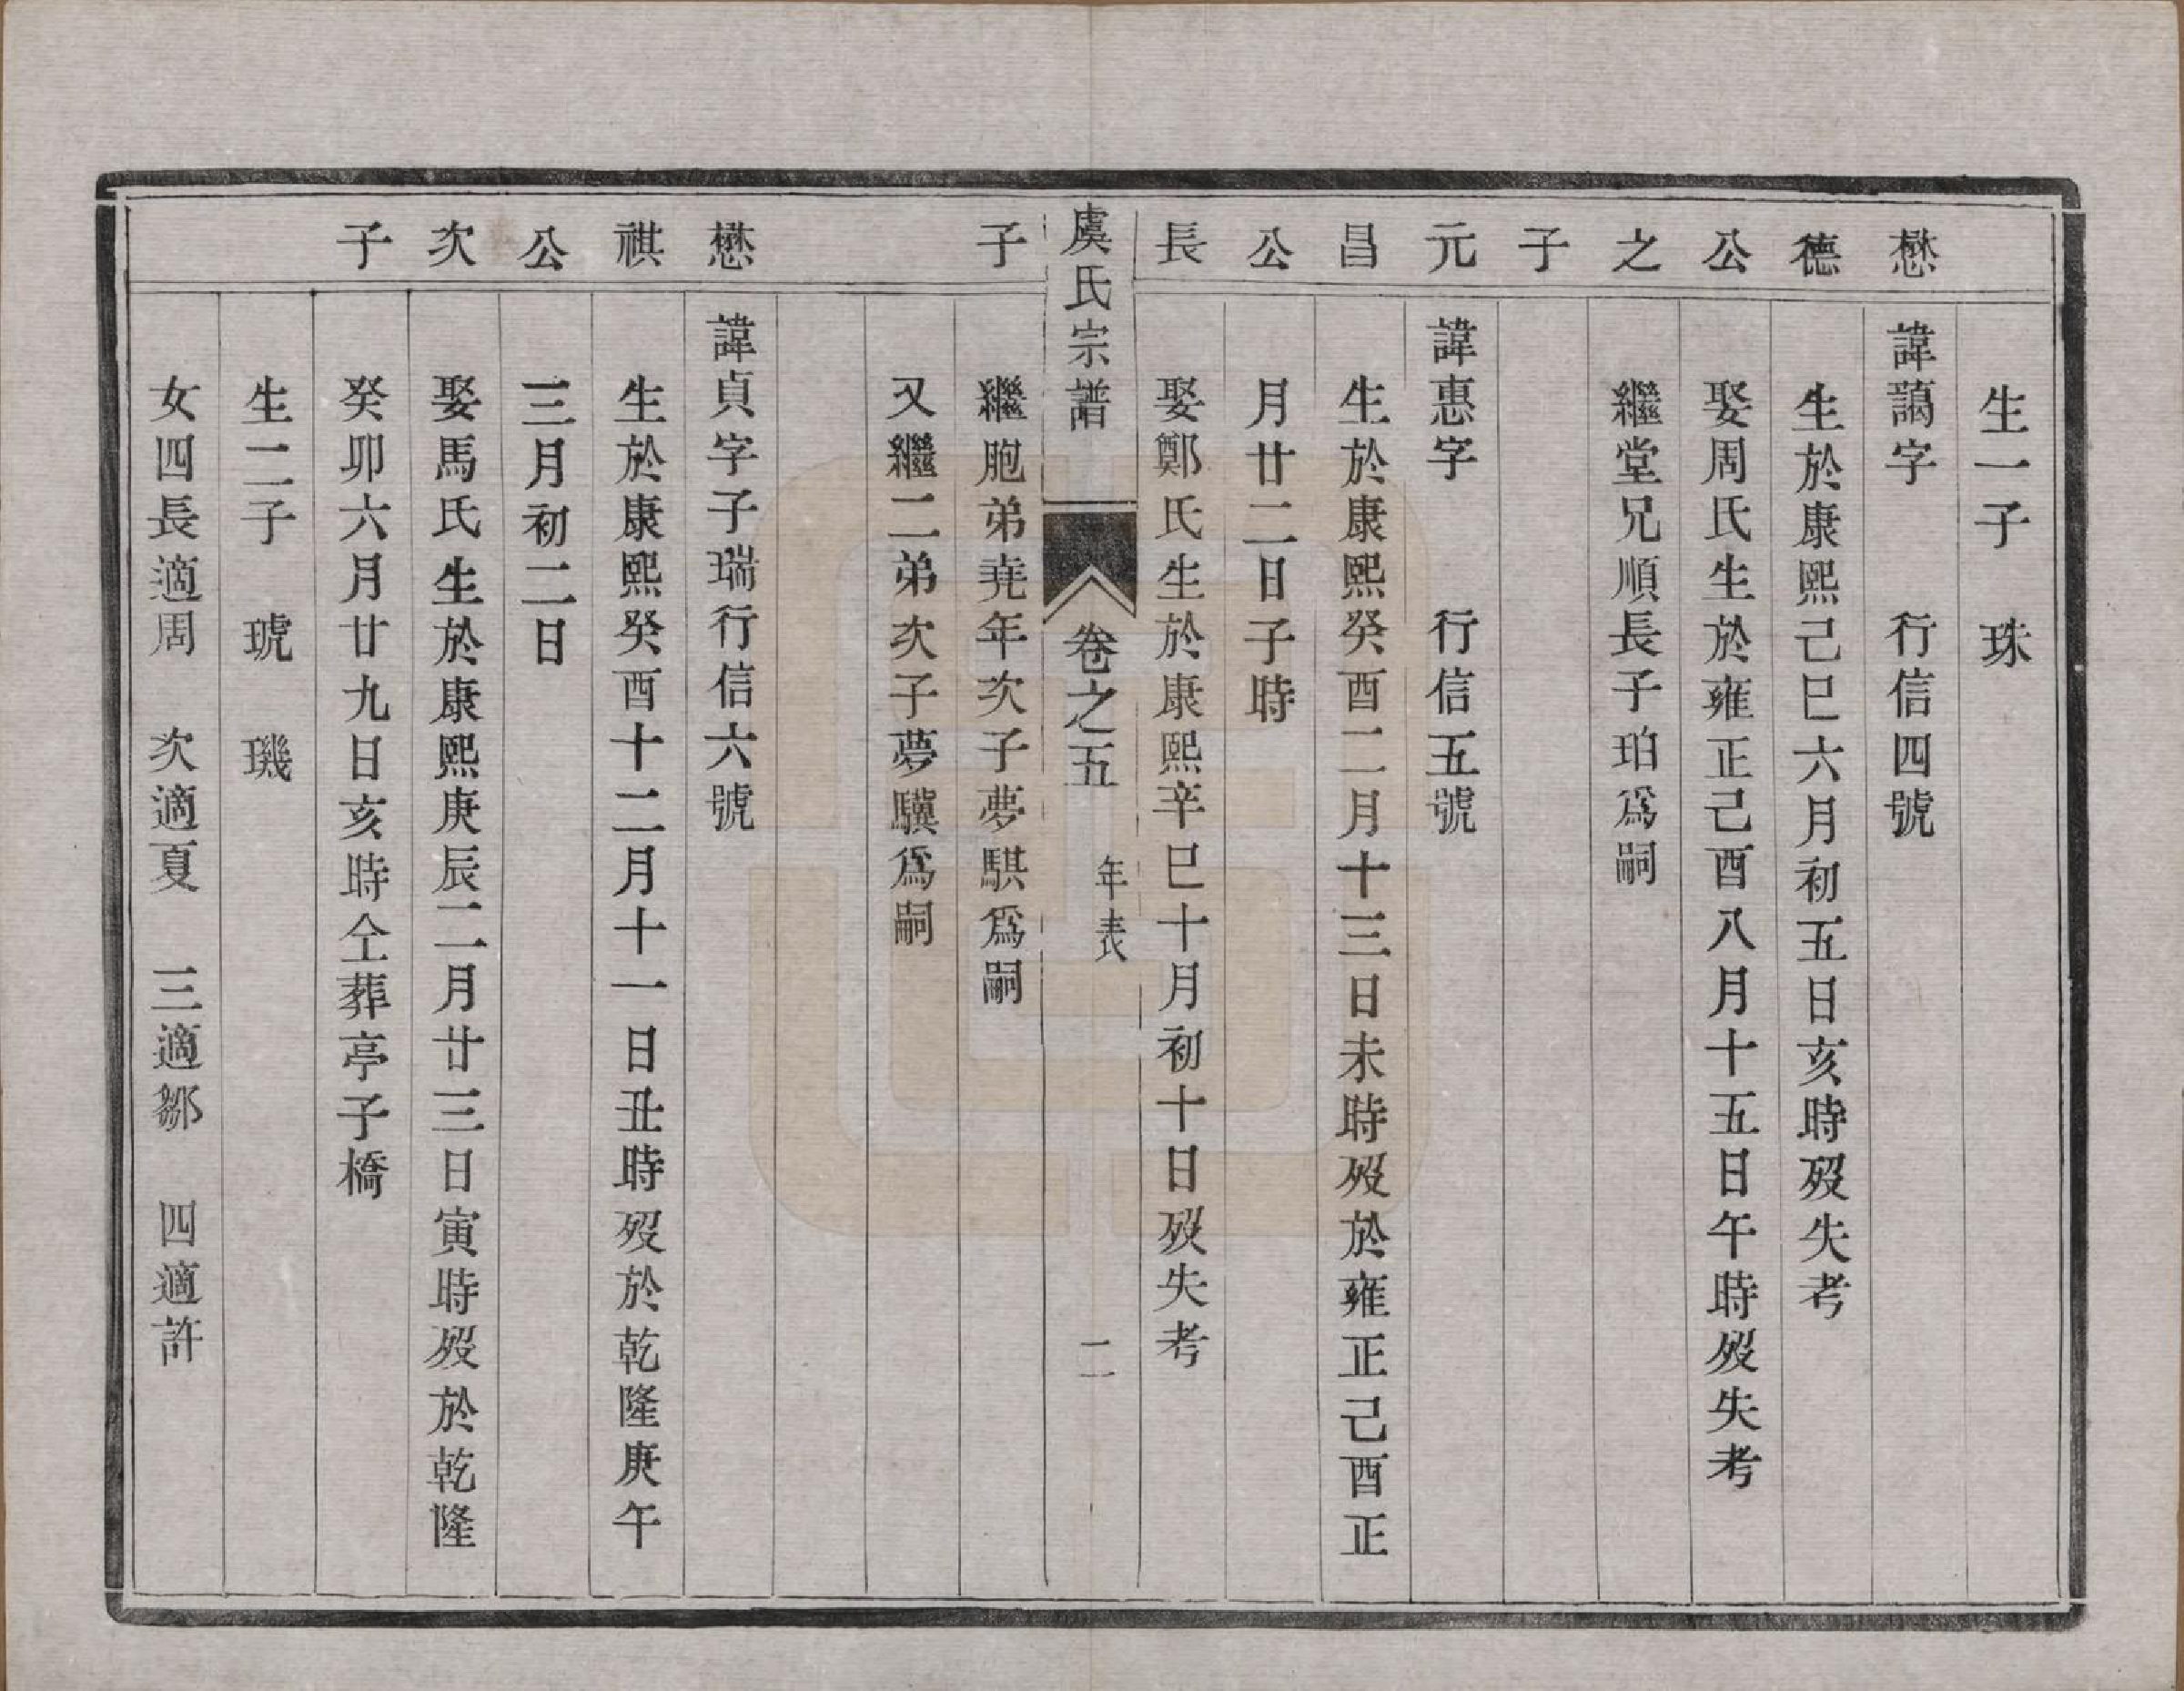 生一子　珠
懋　諱藹字　　行信四號
德　生於康熙己巳六月初五日亥時歿失考
公　娶周氏生於雍正己酉八月十五日午時歿失考
之　繼堂兄順長子珀爲嗣
子
元　諱惠字　　行信五號
昌　生於康熙癸酉二月十三日未時歿於雍正己酉正
公　月廿二日子時
長　娶鄭氏生於康熙辛巳十月初十日歿失考
虞氏宗譜　卷之五　年表　二
子　繼胞弟堯年次子夢騏爲嗣
又繼二弟次子夢驥爲嗣
懋　諱貞字子瑞行信六號
祺　生於康熙癸酉十二月十一日丑時歿於乾隆庚午
公　三月初二日
次　娶馬氏生於康熙庚辰二月廿三日寅時歿於乾隆
子　癸卯六月廿九日亥時仝葬亭子橋
生二子　琥　璣
女四長適周　次適夏　三適鄒　四適許